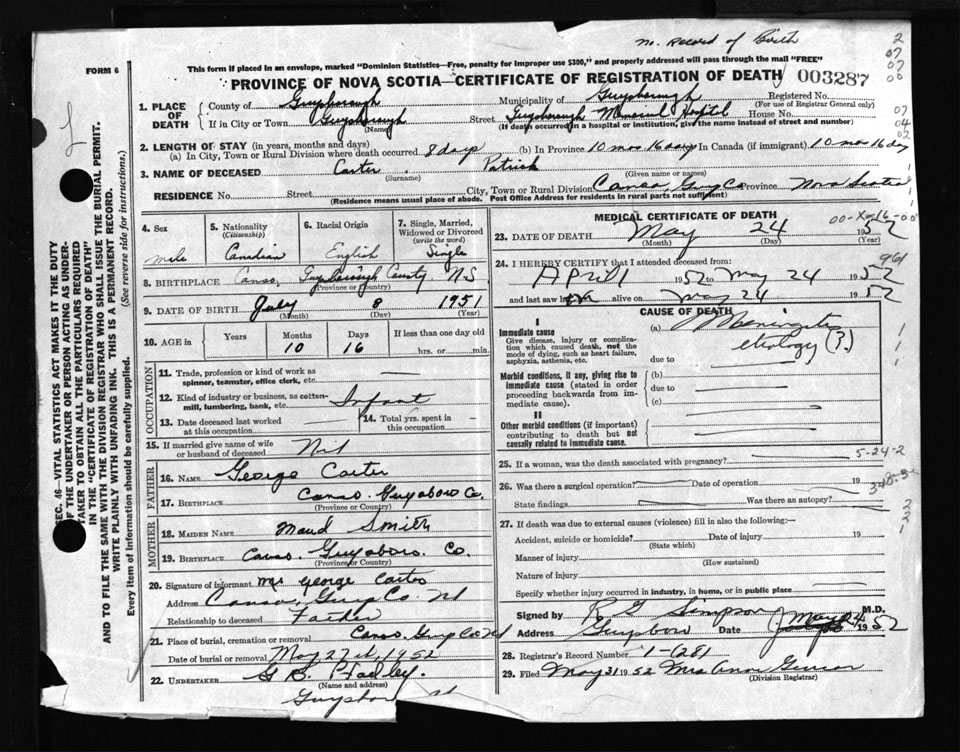 no. Record of Birth
2
07
07
00
FORM 6
This form if placed in an envelope, marked "Dominion Statistics—Free, penalty for improper use $300," and properly addressed will pass through the mail "FREE"
PROVINCE OF NOVA SCOTIA—CERTIFICATE OF REGISTRATION OF DEATH 003287
1. PLACE OF DEATH
County of Guysborough Municipality of Guysborough Registered No.
(For use of Registrar General only)
If in City or Town Guysborough Street Guysborough Memorial Hospital House No.
(Name) (If death occurred in a hospital or institution, give the name instead of street and number)
07
04
02
2. LENGTH OF STAY (in years, months and days)
(a) In City, Town or Rural Division where death occurred 8 days (b) In Province 10 mos 16 days In Canada (if immigrant) 10 mos 16 day
3. NAME OF DECEASED Carter Patrick
(Surname) (Given name or names)
RESIDENCE No. Street City, Town or Rural Division Canso, Guy Co Province Nova Scotia
(Residence means usual place of abode. Post Office Address for residents in rural parts not sufficient)
4. Sex
male
5. Nationality
(Citizenship)
Canadian
6. Racial Origin
English
7. Single, Married, Widowed or Divorced
(write the word)
Single
8. BIRTHPLACE Canso, Guysborough County NS
(Province or Country)
9. DATE OF BIRTH July 8 1951
(Month) (Day) (Year)
10. AGE in
Years
Months
10
Days
16
If less than one day old
hrs. or min.
OCCUPATION
11. Trade, profession or kind of work as
spinner, teamster, office clerk, etc.
12. Kind of industry or business, as cotton-
mill, lumbering, bank, etc. Infant
13. Date deceased last worked
at this occupation
14. Total yrs. spent in
this occupation
15. If married give name of wife
or husband of deceased Nil
FATHER
16. NAME George Carter
17. BIRTHPLACE Canso Guysboro Co.
(Province or Country)
MOTHER
18. MAIDEN NAME Maud Smith
19. BIRTHPLACE Canso. Guysboro. Co.
(Province or Country)
20. Signature of informant Mr George Carter
Address Canso, Guys Co. NS
Relationship to deceased Father
21. Place of burial, cremation or removal Canso, Guys Co NS
Date of burial or removal May 27th, 1952
22. UNDERTAKER G B Hadley.
(Name and address)
MEDICAL CERTIFICATE OF DEATH
23. DATE OF DEATH May 24 1952
(Month) (Day) (Year)
24. I HEREBY CERTIFY that I attended deceased from:
April 1952 to May 24 1952
and last saw him alive on May 24 1952
CAUSE OF DEATH
I
Immediate cause
Give disease, injury or complication which caused death, not the mode of dying, such as heart failure, asphyxia, asthenia, etc.
(a) Meningitis
etiology (?)
due to
Morbid conditions, if any, giving rise to immediate cause (stated in order proceeding backwards from immediate cause).
(b)
due to
(c)
II
Other morbid conditions (if important) contributing to death but not causally related to immediate cause.
5-24-2
25. If a woman, was the death associated with pregnancy?
26. Was there a surgical operation? Date of operation 19
State findings Was there an autopsy?
27. If death was due to external causes (violence) fill in also the following:—
Accident, suicide or homicide? Date of injury 19
(State which)
Manner of injury
(How sustained)
Nature of injury
Specify whether injury occurred in industry, in home, or in public place
Signed by R G Simpson M.D.
Address Guysboro Date May 24 1952
28. Registrar's Record Number 1-(28)
29. Filed May 31 1952 Mrs
(Division Registrar)
SEC. 46—VITAL STATISTICS ACT MAKES IT THE DUTY
OF THE UNDERTAKER OR PERSON ACTING AS UNDER-
TAKER TO OBTAIN ALL THE PARTICULARS REQUIRED
IN THE "CERTIFICATE OF REGISTRATION OF DEATH"
AND TO FILE THE SAME WITH THE DIVISION REGISTRAR WHO SHALL ISSUE THE BURIAL PERMIT.
WRITE PLAINLY WITH UNFADING INK. THIS IS A PERMANENT RECORD.
Every item of information should be carefully supplied. (See reverse side for instructions.)